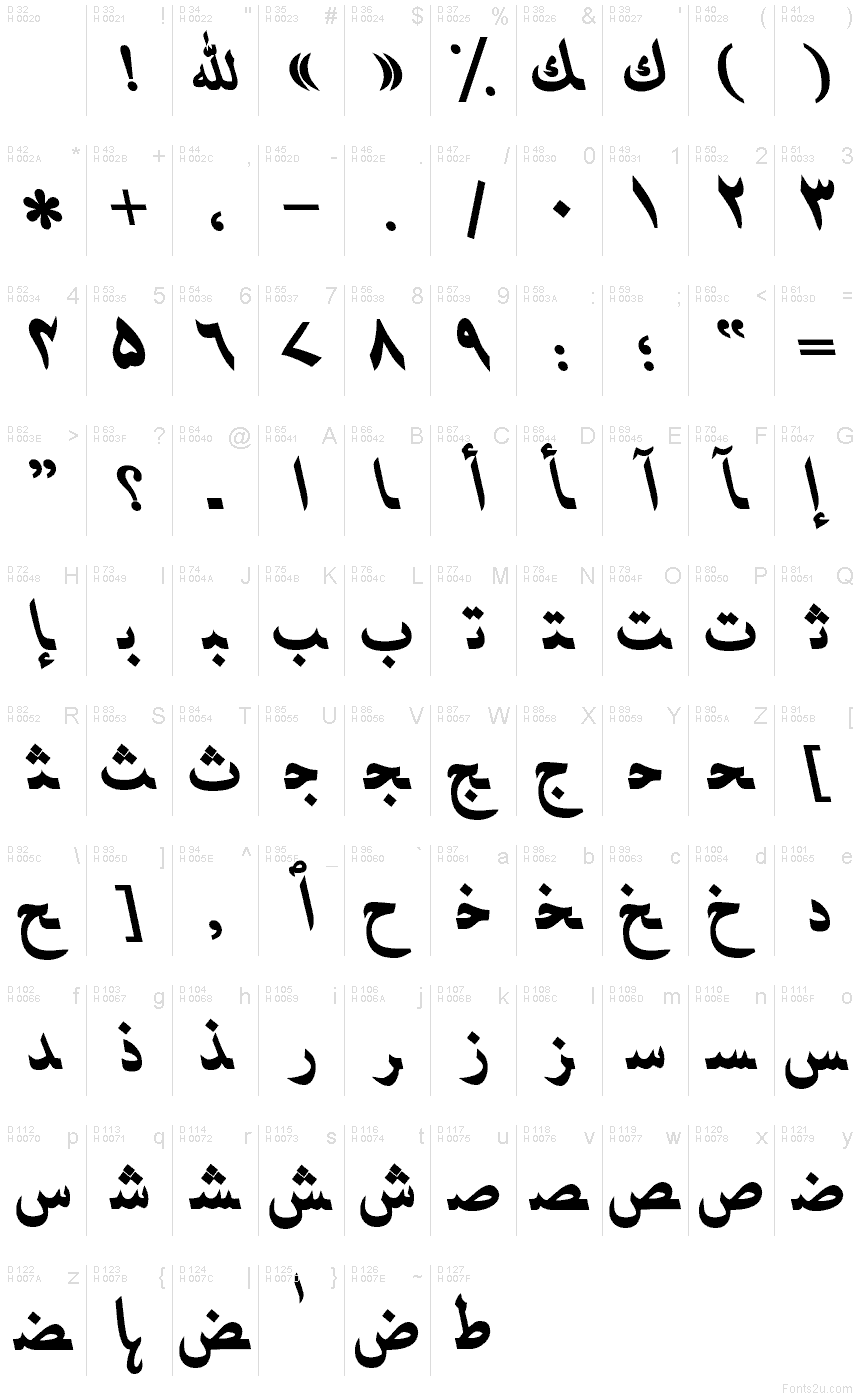 D 32 D 33 ! D 34 " D 35 # D 36 $ D 37 % D 38 & D 39 ' D 40 ( D 41 )
H 0020 H 0021 H 0022 H 0023 H 0024 H 0025 H 0026 H 0027 H 0028 H 0029
! لله « » ٪ ـك ك ( )
D 42 * D 43 + D 44 , D 45 - D 46 . D 47 / D 48 0 D 49 1 D 50 2 D 51 3
H 002A H 002B H 002C H 002D H 002E H 002F H 0030 H 0031 H 0032 H 0033
* + ، - . / ۰ ۱ ۲ ۳
D 52 4 D 53 5 D 54 6 D 55 7 D 56 8 D 57 9 D 58 : D 59 ; D 60 < D 61 =
H 0034 H 0035 H 0036 H 0037 H 0038 H 0039 H 003A H 003B H 003C H 003D
۴ ۵ ٦ ۷ ۸ ۹ : ؛ ” =
D 62 > D 63 ? D 64 @ D 65 A D 66 B D 67 C D 68 D D 69 E D 70 F D 71 G
H 003E H 003F H 0040 H 0041 H 0042 H 0043 H 0044 H 0045 H 0046 H 0047
” ؟ ـ ا ـا أ ـأ آ ـآ إ
D 72 H D 73 I D 74 J D 75 K D 76 L D 77 M D 78 N D 79 O D 80 P D 81 Q
H 0048 H 0049 H 004A H 004B H 004C H 004D H 004E H 004F H 0050 H 0051
ـإ بـ ـبـ ـب ب تـ ـتـ ـت ت ثـ
D 82 R D 83 S D 84 T D 85 U D 86 V D 87 W D 88 X D 89 Y D 90 Z D 91 [
H 0052 H 0053 H 0054 H 0055 H 0056 H 0057 H 0058 H 0059 H 005A H 005B
ـثـ ـث ث جـ ـجـ ـج ج حـ ـحـ [
D 92 \ D 93 ] D 94 ^ D 95 _ D 96 ` D 97 a D 98 b D 99 c D 100 d D 101 e
H 005C H 005D H 005E H 005F H 0060 H 0061 H 0062 H 0063 H 0064 H 0065
ـح ] , ٱ ح خـ ـخـ ـخ خ د
D 102 f D 103 g D 104 h D 105 i D 106 j D 107 k D 108 l D 109 m D 110 n D 111 o
H 0066 H 0067 H 0068 H 0069 H 006A H 006B H 006C H 006D H 006E H 006F
ـد ذ ـذ ر ـر ز ـز سـ ـسـ ـس
D 112 p D 113 q D 114 r D 115 s D 116 t D 117 u D 118 v D 119 w D 120 x D 121 y
H 0070 H 0071 H 0072 H 0073 H 0074 H 0075 H 0076 H 0077 H 0078 H 0079
س شـ ـشـ ـش ش صـ ـصـ ـص ص ضـ
D 122 z D 123 { D 124 | D 125 } D 126 ~ D 127
H 007A H 007B H 007C H 007D H 007E H 007F
ـضـ ـض ض ط
Fonts2u.com